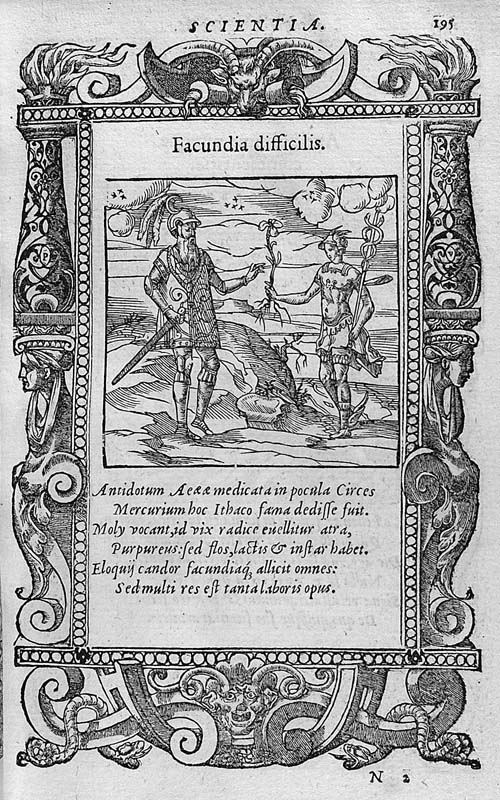 SCIENTIA. 195
Facundia difficilis.
Antidotum Aeææ medicata in pocula Circes
Mercurium hoc Ithaco fama dedisse fuit.
Moly vocant, id vix radice evellitur atra,
Purpureus: sed flos, lactis & instar habet.
Eloquij candor facundiaq́, allicit omnes:
Sed multi res est tanta laboris opus.
N 2